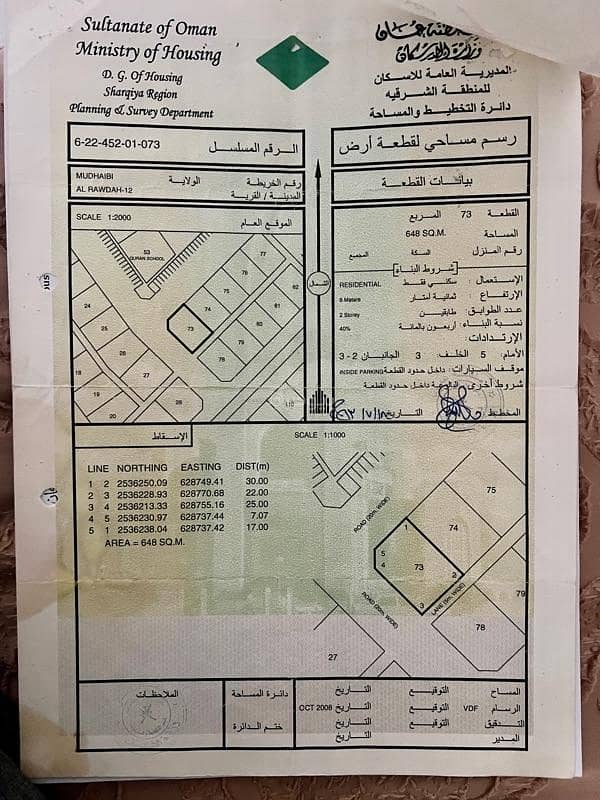 Sultanate of Oman
Ministry of Housing
D. G. Of Housing
Sharqiya Region
Planning & Survey Department
المديرية العامة للاسكان
للمنطقة الشرقيه
دائرة التخطيط والمساحة
6-22-452-01-073 الرقم المسلسل
رسم مساحي لقطعة أرض
MUDHAIBI الولاية رقم الخريطة
AL RAWDAH-12 المدينة / القرية
بيانات القطعة
SCALE 1:2000 الموقع العام
53
QURAN SCHOOL
77
76
75
74
73
82
81
80
79
78
24
25
26
27
28
18
19
20
21
22
الشمال
القطعة 73 المربع
المساحة 648 SQ.M.
رقم المنزل السكة المجمع
شروط البناء
الإستعمال: سكني فقط RESIDENTIAL
الإرتفاع: ثمانية أمتار 8 Meters
عدد الطوابق: طابقين 2 Storey
نسبة البناء: أربعون بالمائة 40%
الإرتدادات:
الأمام: 5 الخلف: 3 الجانبان 2 - 3
موقف السيارات: داخل حدود القطعة INSIDE PARKING
شروط أخرى: داخل حدود القطعة
المخطط التاريخ
الإسقاط
SCALE 1:1000
LINE NORTHING EASTING DIST(m)
1 2 2536250.09 628749.41 30.00
2 3 2536228.93 628770.68 22.00
3 4 2536213.33 628755.16 25.00
4 5 2536230.97 628737.44 7.07
5 1 2536238.04 628737.42 17.00
AREA = 648 SQ.M.
75
74
73
1
2
3
4
5
79
78
27
LANE (6m. WIDE)
الملاحظات
دائرة المساحة
ختم الدائرة
المساح التوقيع التاريخ
الرسام VDF التوقيع التاريخ OCT 2008
التدقيق التوقيع التاريخ
المدير التاريخ